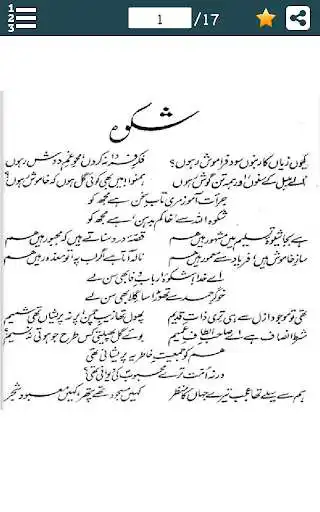 1
2
3
1 /17
شکوہ
کیوں زیاں کار بنوں سود فراموش رہوں؟ فکرِ فردا نہ کروں محوِ غمِ دوش رہوں
نالے بلبل کے سنوں اور ہمہ تن گوش رہوں ہمنوا! میں بھی کوئی گل ہوں کہ خاموش رہوں؟
جرأت آموز مری تابِ سخن ہے مجھ کو
شکوہ اللہ سے خاکم بدہن ہے مجھ کو
ہے بجا شیوۂ تسلیم میں مشہور ہیں ہم قصۂ درد سناتے ہیں کہ مجبور ہیں ہم
سازِ خاموش ہیں، فریاد سے معمور ہیں ہم نالہ آتا ہے اگر لب پہ تو معذور ہیں ہم
اے خدا! شکوۂ اربابِ وفا بھی سن لے
خوگرِ حمد سے تھوڑا سا گلا بھی سن لے
تھی تو موجود ازل سے ہی تری ذاتِ قدیم پھول تھا زیبِ چمن پر نہ پریشاں تھی شمیم
شرط انصاف ہے اے صاحبِ الطافِ عمیم بوئے گل پھیلتی کس طرح جو ہوتی نہ نسیم؟
ہم کو جمعیتِ خاطر یہ پریشانی تھی
ورنہ امت ترے محبوب کی دیوانی تھی؟
ہم سے پہلے تھا عجب تیرے جہاں کا منظر کہیں مسجود تھے پتھر، کہیں معبود شجر